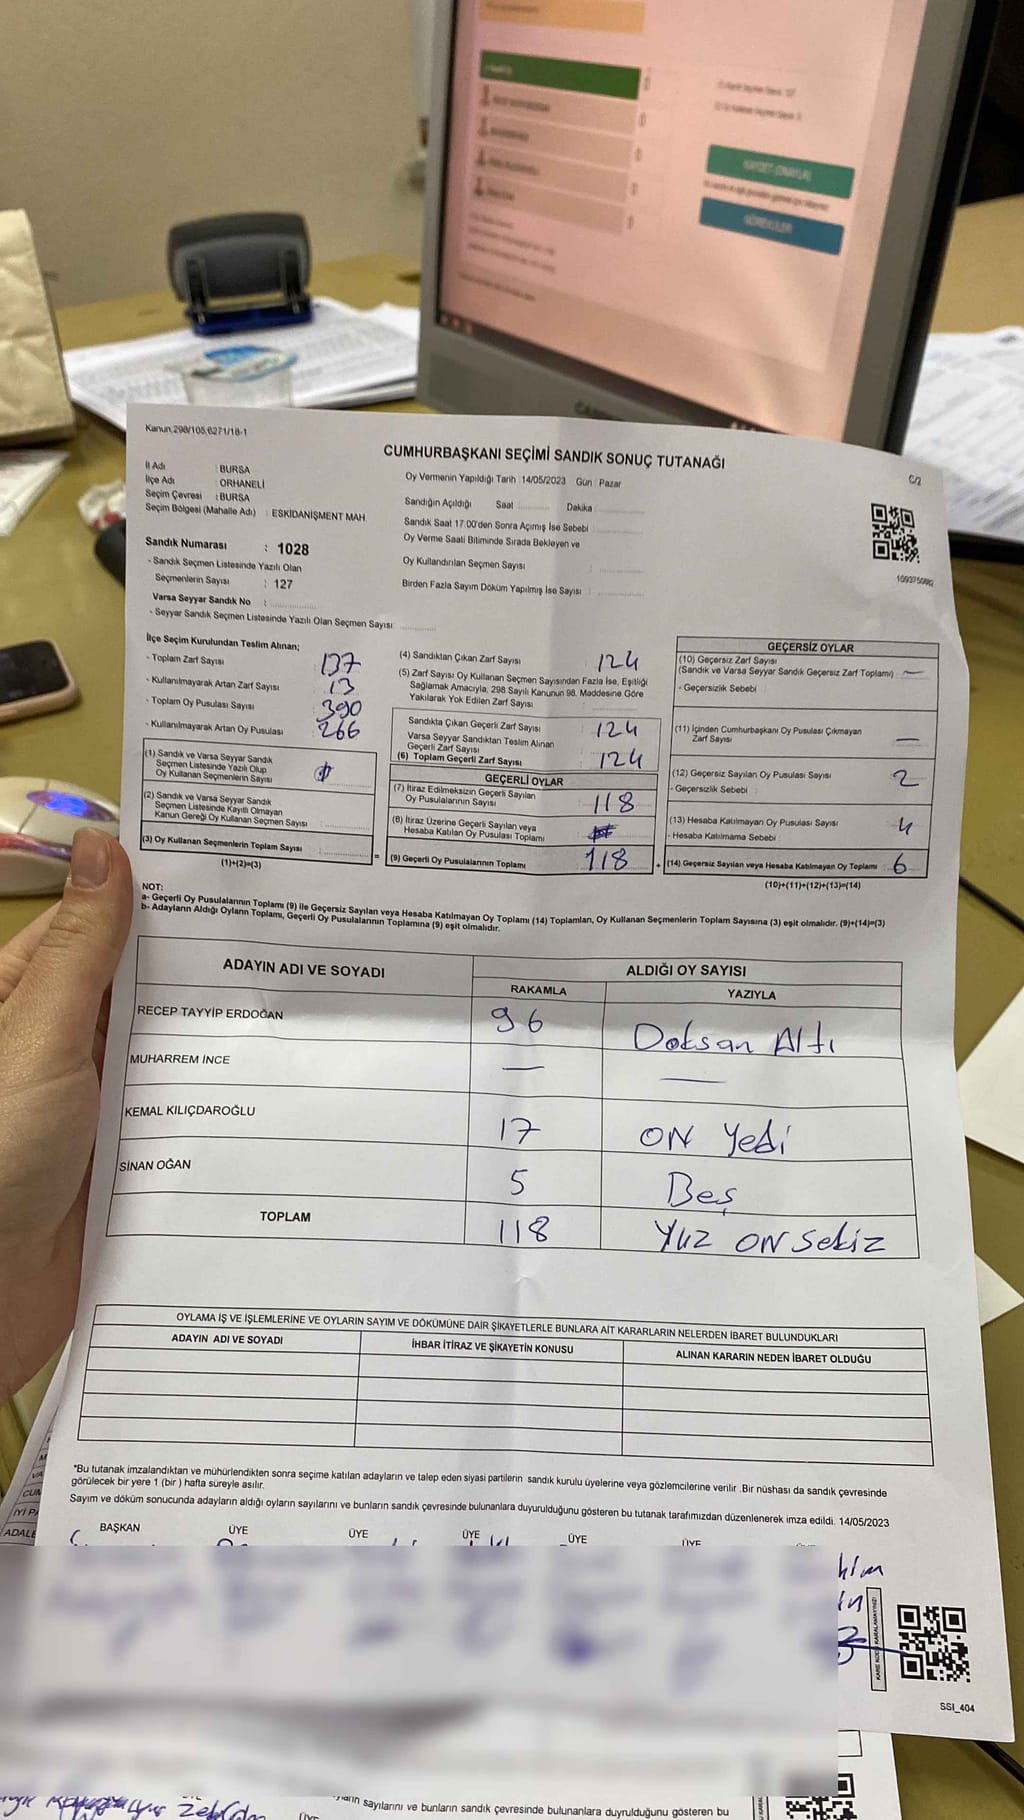 KAYDET (ONAYLA)
GÖREVLİLER
Kanun.298/105,6271/18-1
C/2
CUMHURBAŞKANI SEÇİMİ SANDIK SONUÇ TUTANAĞI
İl Adı : BURSA
İlçe Adı : ORHANELİ
Seçim Çevresi : BURSA
Seçim Bölgesi (Mahalle Adı) : ESKİDANİŞMENT MAH
Sandık Numarası : 1028
- Sandık Seçmen Listesinde Yazılı Olan
Seçmenlerin Sayısı : 127
Varsa Seyyar Sandık No :
- Seyyar Sandık Seçmen Listesinde Yazılı Olan Seçmen Sayısı
Oy Vermenin Yapıldığı Tarih :14/05/2023 Gün : Pazar
Sandığın Açıldığı Saat Dakika
Sandık Saat 17.00'den Sonra Açımış İse Sebebi
Oy Verme Saati Bitiminde Sırada Bekleyen ve
Oy Kullandırılan Seçmen Sayısı
Birden Fazla Sayım Döküm Yapılmış İse Sayısı
İlçe Seçim Kurulundan Teslim Alınan;
- Toplam Zarf Sayısı 137
- Kullanılmayarak Artan Zarf Sayısı 13
- Toplam Oy Pusulası Sayısı 390
- Kullanılmayarak Artan Oy Pusulası 266
(1) Sandık ve Varsa Seyyar Sandık
Seçmen Listesinde Yazılı Olup
Oy Kullanan Seçmenlerin Sayısı
(2) Sandık ve Varsa Seyyar Sandık
Seçmen Listesinde Kayıtlı Olmayan
Kanun Gereği Oy Kullanan Seçmen Sayısı
(3) Oy Kullanan Seçmenlerin Toplam Sayısı
(1)+(2)=(3)
(4) Sandıktan Çıkan Zarf Sayısı 124
(5) Zarf Sayısı Oy Kullanan Seçmen Sayısından Fazla İse, Eşitliği
Sağlamak Amacıyla, 298 Sayılı Kanunun 98. Maddesine Göre
Yakılarak Yok Edilen Zarf Sayısı
Sandıkta Çıkan Geçerli Zarf Sayısı 124
Varsa Seyyar Sandıktan Teslim Alınan
Geçerli Zarf Sayısı
(6) Toplam Geçerli Zarf Sayısı 124
GEÇERLİ OYLAR
(7) İtiraz Edilmeksizin Geçerli Sayılan
Oy Pusulalarının Sayısı 118
(8) İtiraz Üzerine Geçerli Sayılan veya
Hesaba Katılan Oy Pusulası Toplamı
= (9) Geçerli Oy Pusulalarının Toplamı 118 +
GEÇERSİZ OYLAR
(10) Geçersiz Zarf Sayısı
(Sandık ve Varsa Seyyar Sandık Geçersiz Zarf Toplamı) —
- Geçersizlik Sebebi
(11) İçinden Cumhurbaşkanı Oy Pusulası Çıkmayan
Zarf Sayısı —
(12) Geçersiz Sayılan Oy Pusulası Sayısı 2
- Geçersizlik Sebebi :
(13) Hesaba Katılmayan Oy Pusulası Sayısı 4
- Hesaba Katılmama Sebebi :
(14) Geçersiz Sayılan veya Hesaba Katılmayan Oy Toplamı 6
(10)+(11)+(12)+(13)=(14)
NOT:
a- Geçerli Oy Pusulalarının Toplamı (9) ile Geçersiz Sayılan veya Hesaba Katılmayan Oy Toplamı (14) Toplamları, Oy Kullanan Seçmenlerin Toplam Sayısına (3) eşit olmalıdır. (9)+(14)=(3)
b- Adayların Aldığı Oyların Toplamı, Geçerli Oy Pusulalarının Toplamına (9) eşit olmalıdır.
ADAYIN ADI VE SOYADI ALDIĞI OY SAYISI
RAKAMLA YAZIYLA
RECEP TAYYİP ERDOĞAN 96 Doksan Altı
MUHARREM İNCE — —
KEMAL KILIÇDAROĞLU 17 ON Yedi
SİNAN OĞAN 5 Beş
TOPLAM 118 Yüz ON Sekiz
OYLAMA İŞ VE İŞLEMLERİNE VE OYLARIN SAYIM VE DÖKÜMÜNE DAİR ŞİKAYETLERLE BUNLARA AİT KARARLARIN NELERDEN İBARET BULUNDUKLARI
ADAYIN ADI VE SOYADI İHBAR İTİRAZ VE ŞİKAYETİN KONUSU ALINAN KARARIN NEDEN İBARET OLDUĞU
*Bu tutanak imzalandıktan ve mühürlendikten sonra seçime katılan adayların ve talep eden siyasi partilerin sandık kurulu üyelerine veya gözlemcilerine verilir .Bir nüshası da sandık çevresinde
görülecek bir yere 1 (bir ) hafta süreyle asılır.
Sayım ve döküm sonucunda adayların aldığı oyların sayılarını ve bunların sandık çevresinde bulunanlara duyurulduğunu gösteren bu tutanak tarafımızdan düzenlenerek imza edildi. 14/05/2023
BAŞKAN ÜYE ÜYE ÜYE ÜYE ÜYE
KARE KODU KARALAMAYINIZ!
SSI_404
sayılarını ve bunların sandık çevresinde bulunanlara duyrulduğunu gösteren bu